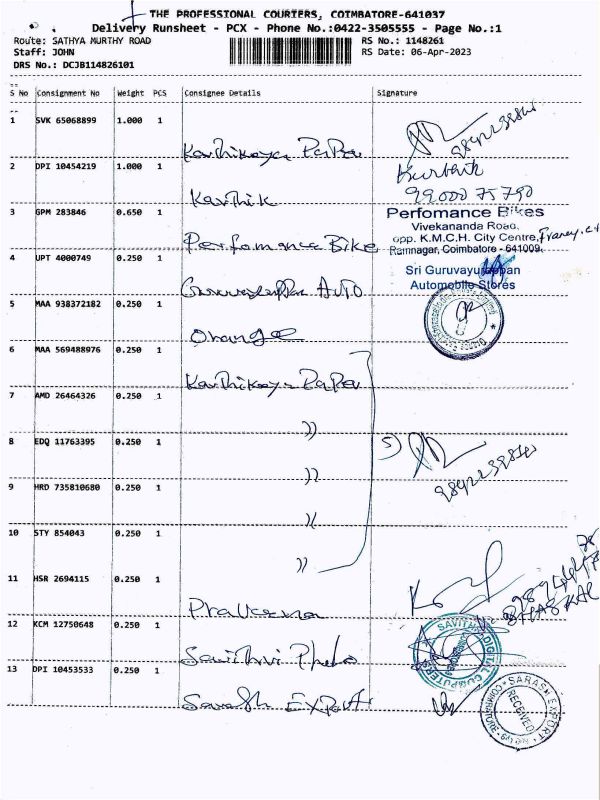 THE PROFESSIONAL COURIERS, COIMBATORE-641037
Delivery Runsheet - PCX - Phone No.:0422-3505555 - Page No.:1
Route: SATHYA MURTHY ROAD RS No.: 1148261
Staff: JOHN RS Date: 06-Apr-2023
DRS No.: DCJB114826101
S No Consignment No Weight PCS Consignee Details Signature
1 SVK 65068899 1.000 1
Karthikeya Papers
2 DPI 10454219 1.000 1
Karthik Karthik
9900075790
3 GPM 283846 0.650 1
Perfomance Bike
Perfomance Bikes
Vivekananda Road,
opp. K.M.C.H. City Centre,
Ramnagar, Coimbatore - 641009.
4 UPT 4000749 0.250 1
Guruvayurappan Auto
Sri Guruvayurappan
Automobile Stores
5 MAA 938372182 0.250 1
Orange
6 MAA 569488976 0.250 1
Karthikeya Papers
7 AMD 26464326 0.250 1
))
8 EDQ 11763395 0.250 1
)) 5)
9 HRD 735810680 0.250 1
))
10 STY 854043 0.250 1
))
11 HSR 2694115 0.250 1
BHASKAR
12 KCM 12750648 0.250 1
Savithri Photo
SAVITHA DIGITAL COMPUTERS
13 DPI 10453533 0.250 1
Sarash Export
SARASH EXPORT
RECEIVED
COIMBATORE